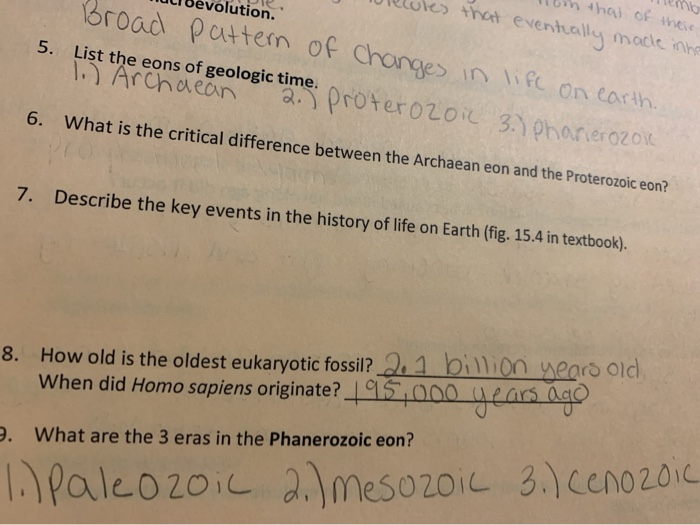 that of their
that eventually made
Broad pattern of changes in life on earth.
5. List the eons of geologic time.
1.) Archaean 2.) proterozoic 3.) phanerozoic
6. What is the critical difference between the Archaean eon and the Proterozoic eon?
7. Describe the key events in the history of life on Earth (fig. 15.4 in textbook).
8. How old is the oldest eukaryotic fossil? 2.1 billion years old
When did Homo sapiens originate? 195,000 years ago
9. What are the 3 eras in the Phanerozoic eon?
1.) Paleozoic 2.) mesozoic 3.) cenozoic